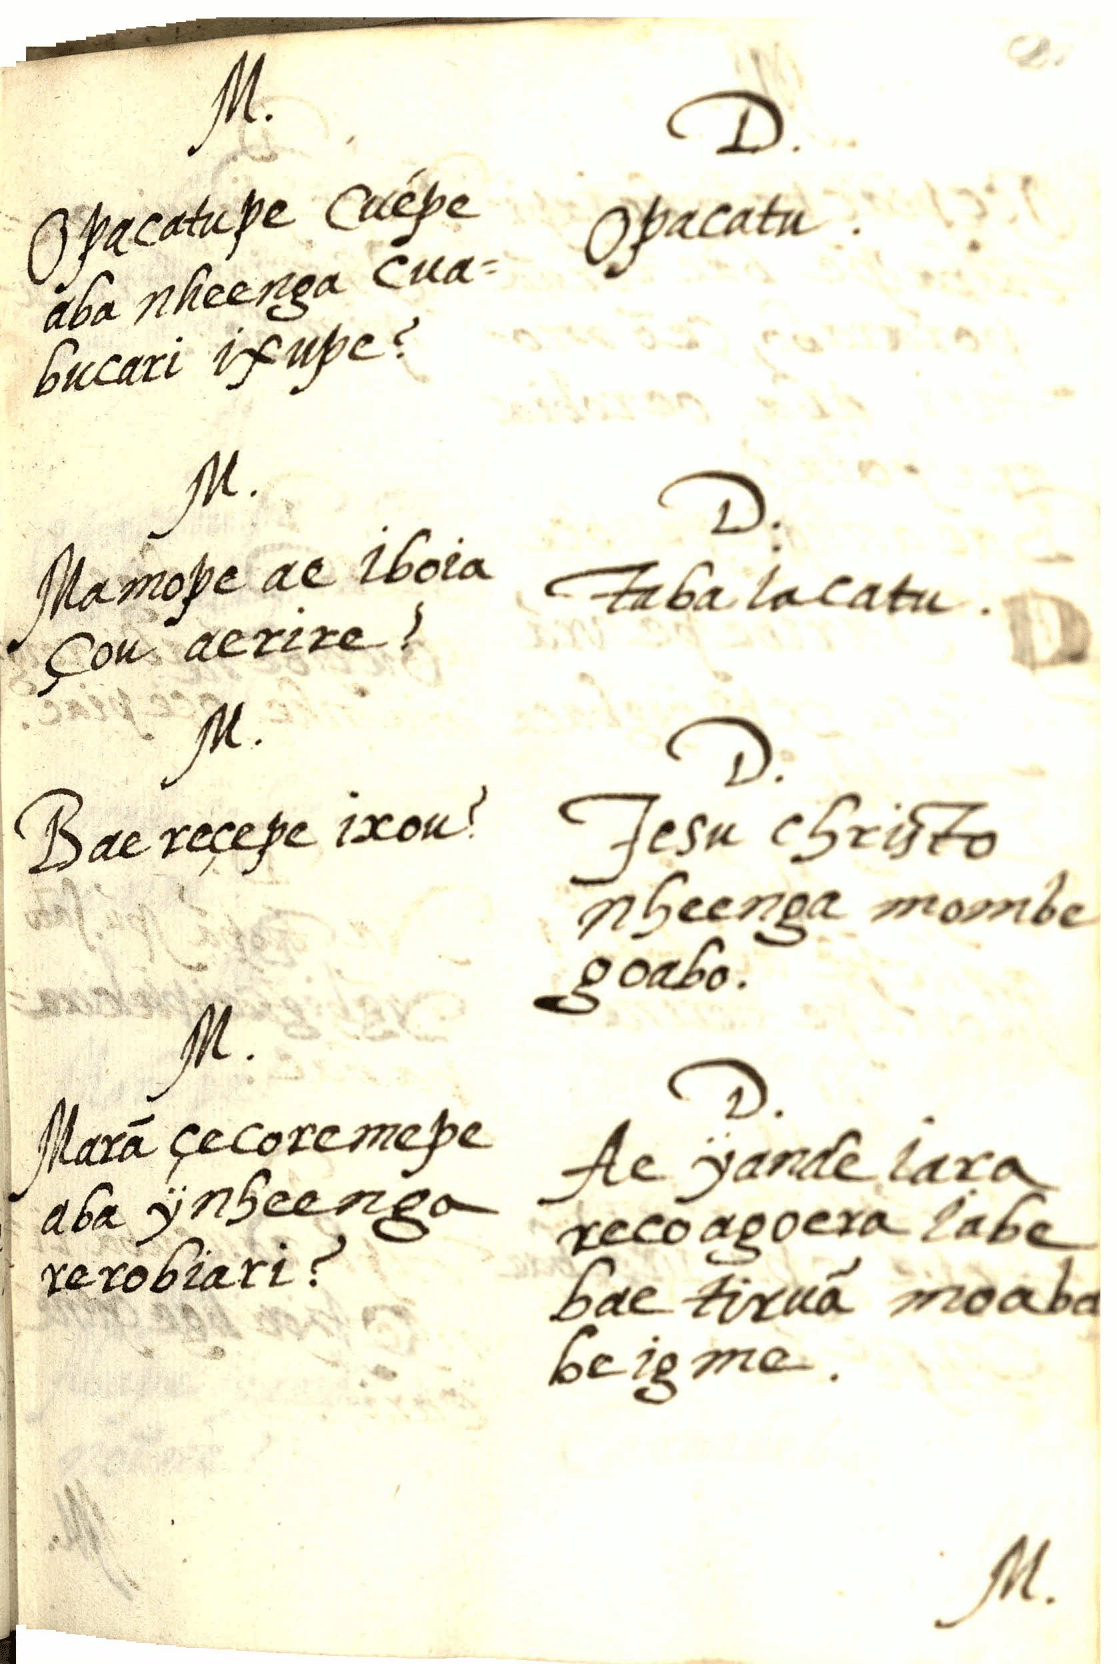 M.
Opacatupe Cuépe
aba nheenga Cua=
bucari ixupe?
D.
Opacatu.
M.
Mamope ae iboia
çou aerire?
D.
Taba iacatu.
M.
Bae reçepe ixou?
D.
Jesu christo
nheenga mombe
goabo.
M.
Marã çecoremepe
aba ÿnheenga
rerobiari?
D.
Ae ÿande iara
recoagoera iabe
bae tiruã moaba
beigme.
M.